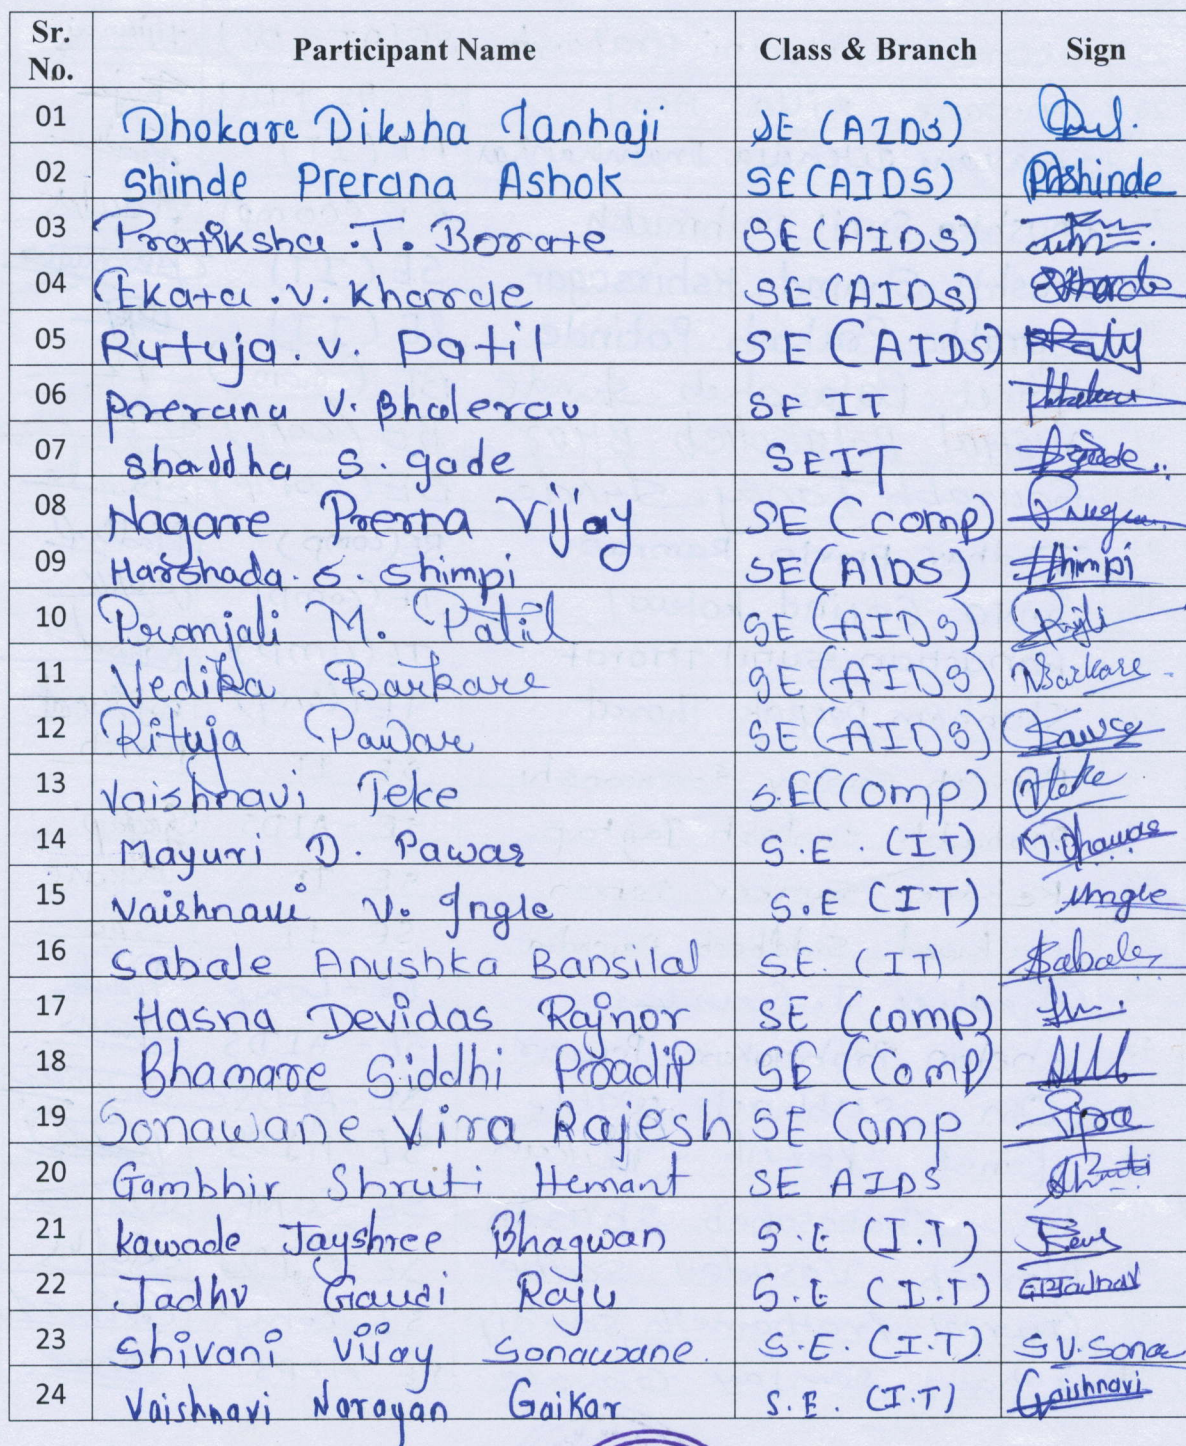 Sr. No. Participant Name Class & Branch Sign
01 Dhokare Diksha Tanhaji SE (AIDS)
02 Shinde Prerana Ashok SE (AIDS) PAshinde
03 Pratiksha .T. Borate SE (AIDS)
04 Ekata .V. Kharde SE (AIDS) Kharde
05 Rutuja. V. Patil SE (AIDS)
06 Prerana V. Bhalerav SE IT
07 Shaddha S. gade SEIT
08 Nagare Prerna Vijay SE (comp)
09 Harshada. S. Shimpi SE (AIDS) Shimpi
10 Pranjali M. Patil SE (AIDS)
11 Vedika Barkare SE (AIDS) VBarkare
12 Rituja Pawar SE (AIDS)
13 Vaishnavi Teke S.E (Comp) VTeke
14 Mayuri D. Pawar S.E. (IT) M.Dhawar
15 Vaishnavi V. Ingle S.E (IT) VIngle
16 Sabale Anushka Bansilal S.E. (IT) Sabale
17 Hasna Devidas Rajnor SE (comp)
18 Bhamare Siddhi Pradip SE (Comp)
19 Sonawane Vira Rajesh SE Comp
20 Gambhir Shruti Hemant SE AIDS Shruti
21 Kawade Jayshree Bhagwan S.E (I.T)
22 Jadhv Gauri Raju S.E (I.T) GRJadhav
23 Shivani Vijay Sonawane. S.E. (I.T) S V. Sona
24 Vaishnavi Narayan Gaikar S.E. (I.T) Gaishnavi